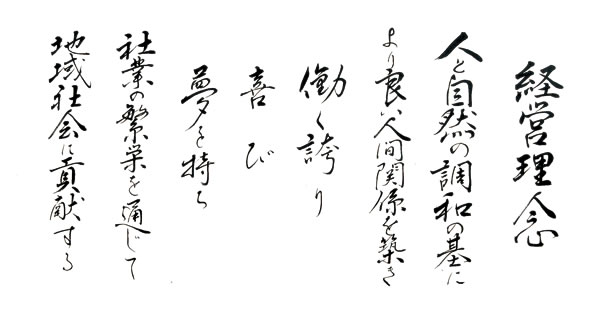 経営理念
人と自然の調和の基に
より良い人間関係を築き
働く誇り
喜び
夢を持ち
社業の繁栄を通じて
地域社会に貢献する